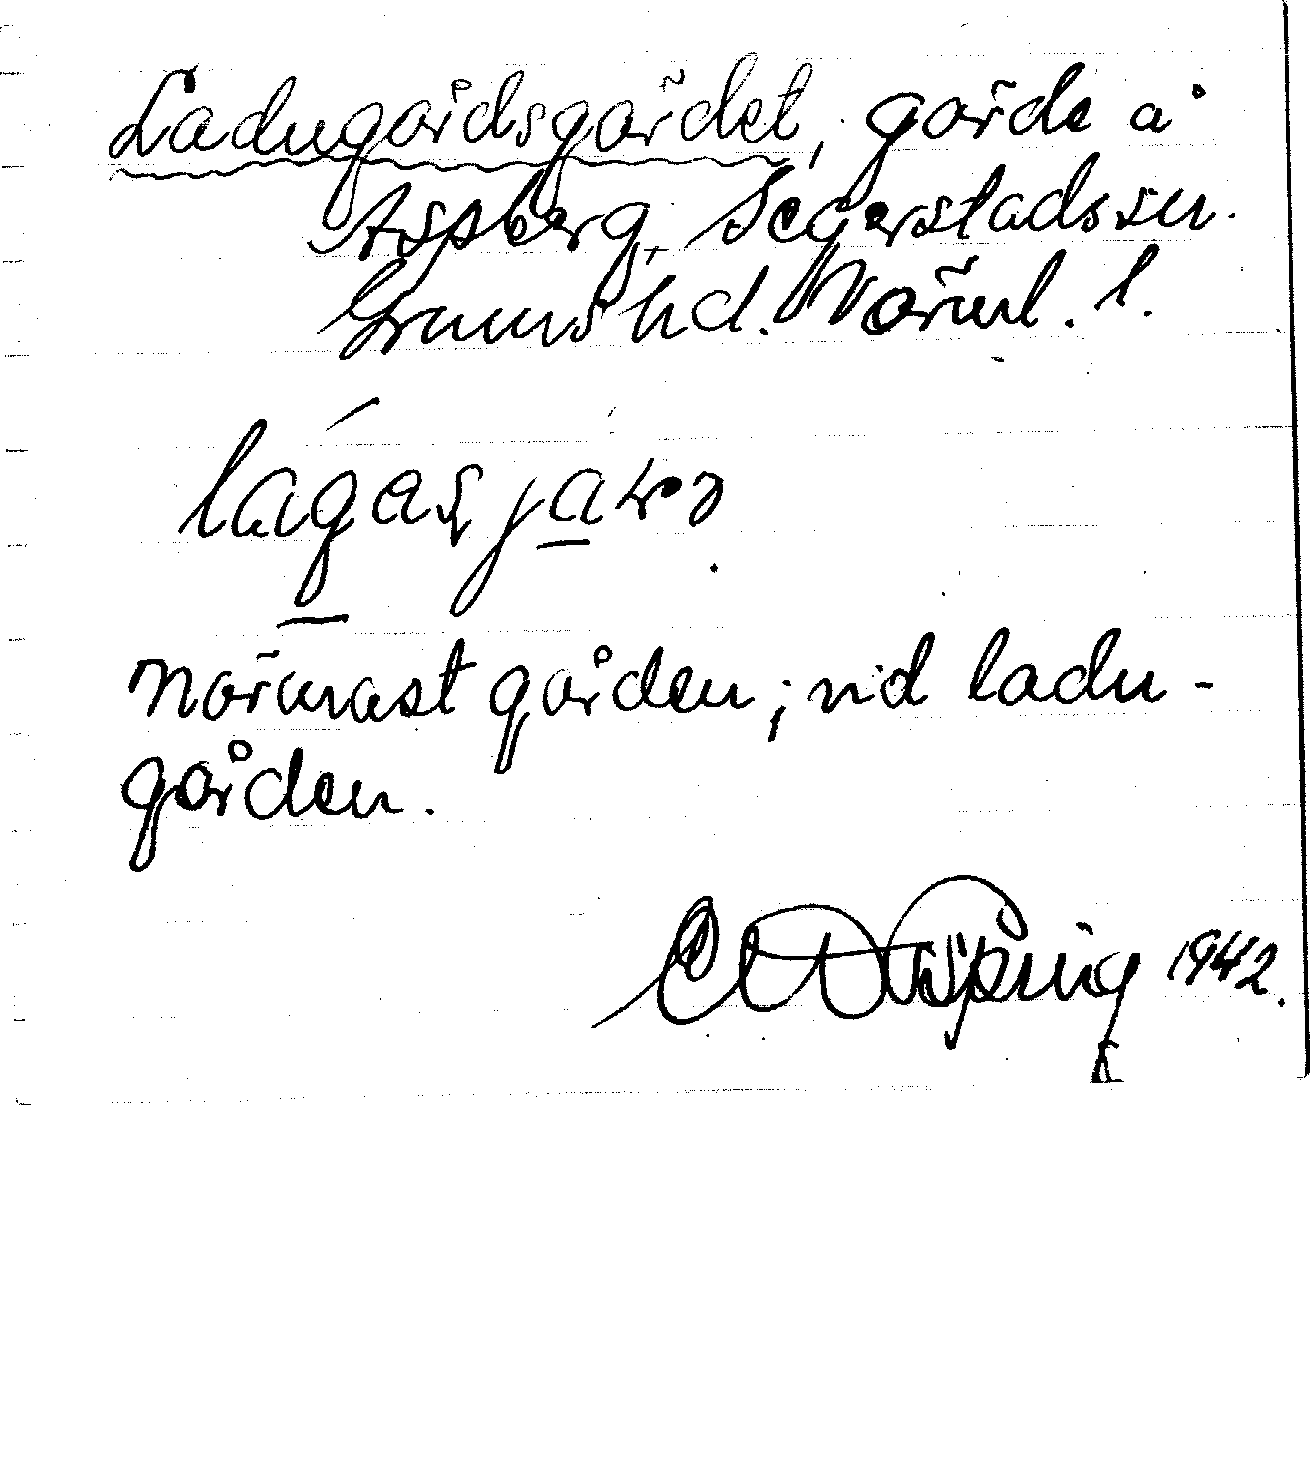 Ladugårdsgärdet, gärde å
Aspberg, Segerstads sn.
Grums hd. Värml. l.
Närmast gården; vid ladu-
gården.
1942.